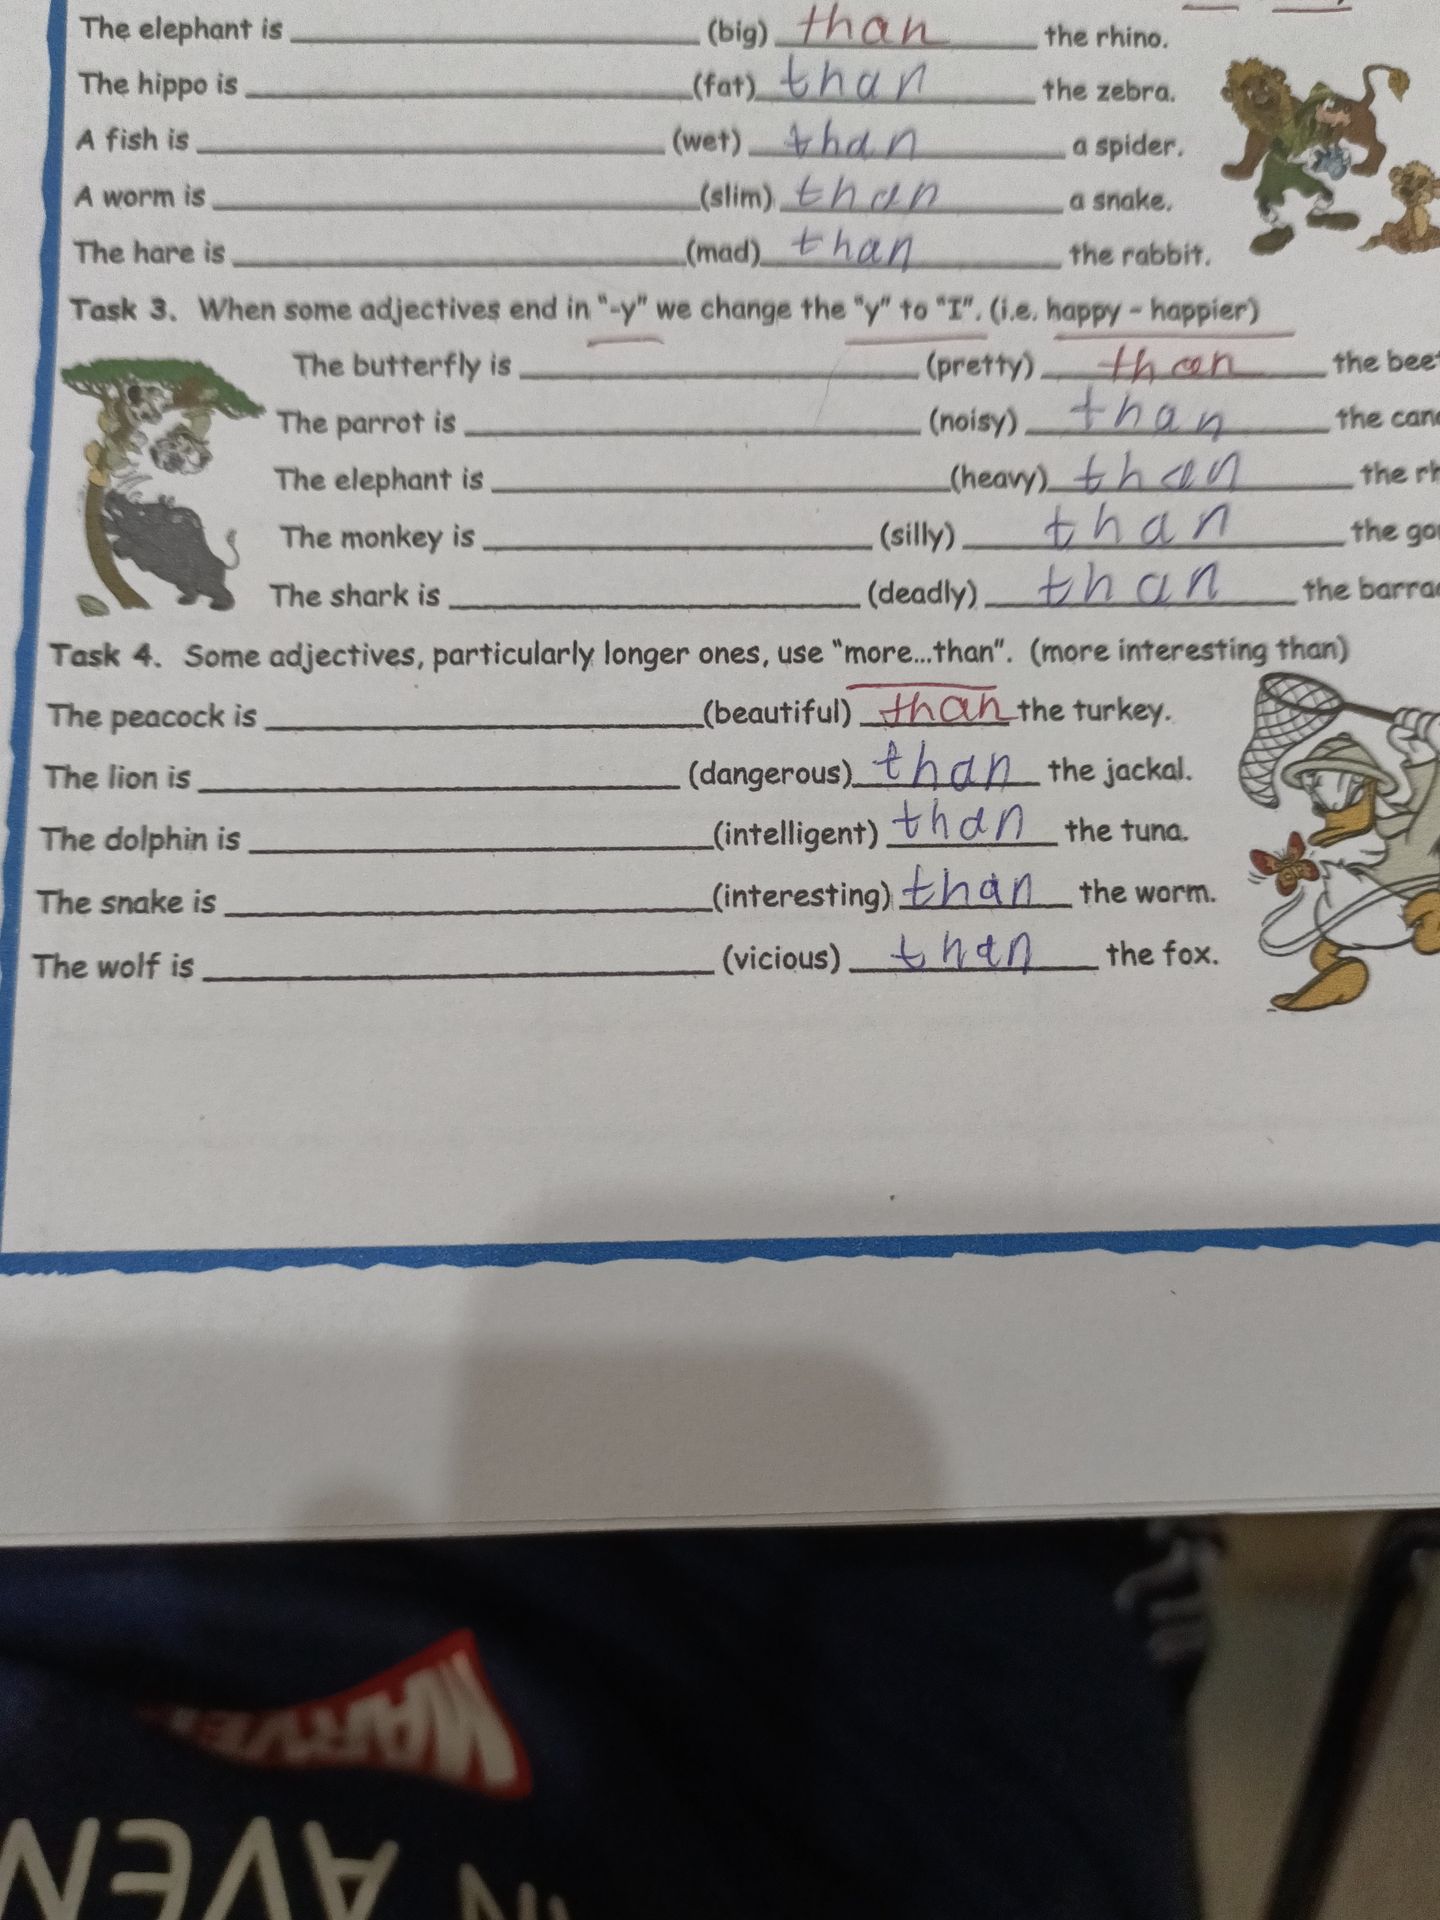 The elephant is ____ (big) than the rhino.
The hippo is ____ (fat) than the zebra.
A fish is ____ (wet) than a spider.
A worm is ____ (slim) than a snake.
The hare is ____ (mad) than the rabbit.
Task 3. When some adjectives end in "-y" we change the "y" to "I". (i.e. happy - happier)
The butterfly is ____ (pretty) than the bee
The parrot is ____ (noisy) than the can
The elephant is ____ (heavy) than the rh
The monkey is ____ (silly) than the go
The shark is ____ (deadly) than the barra
Task 4. Some adjectives, particularly longer ones, use "more...than". (more interesting than)
The peacock is ____ (beautiful) than the turkey.
The lion is ____ (dangerous) than the jackal.
The dolphin is ____ (intelligent) than the tuna.
The snake is ____ (interesting) than the worm.
The wolf is ____ (vicious) than the fox.
MARVEL
IN AVEN